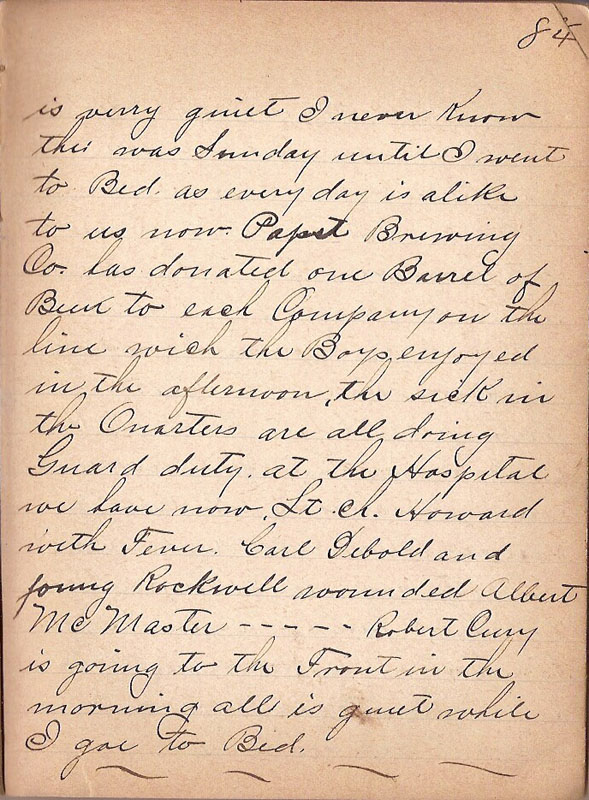 84
is verry quiet I never Know
this was Sunday until I went
to Bed. as every day is alike
to us now. Papst Brewing
Co. has donated one Barrel of
Beer to each Company on the
line wich the Boys enjoyed
in the afternoon, the sick in
the Quarters are all doing
Guard duty. at the Hospital
we have now, Lt. Ch. Howard
with Fever. Carl Debold and
young Rockwell wounded Albert
Mc Master - - - - - Robert Cury
is going to the Front in the
morning all is quiet while
I goe to Bed.